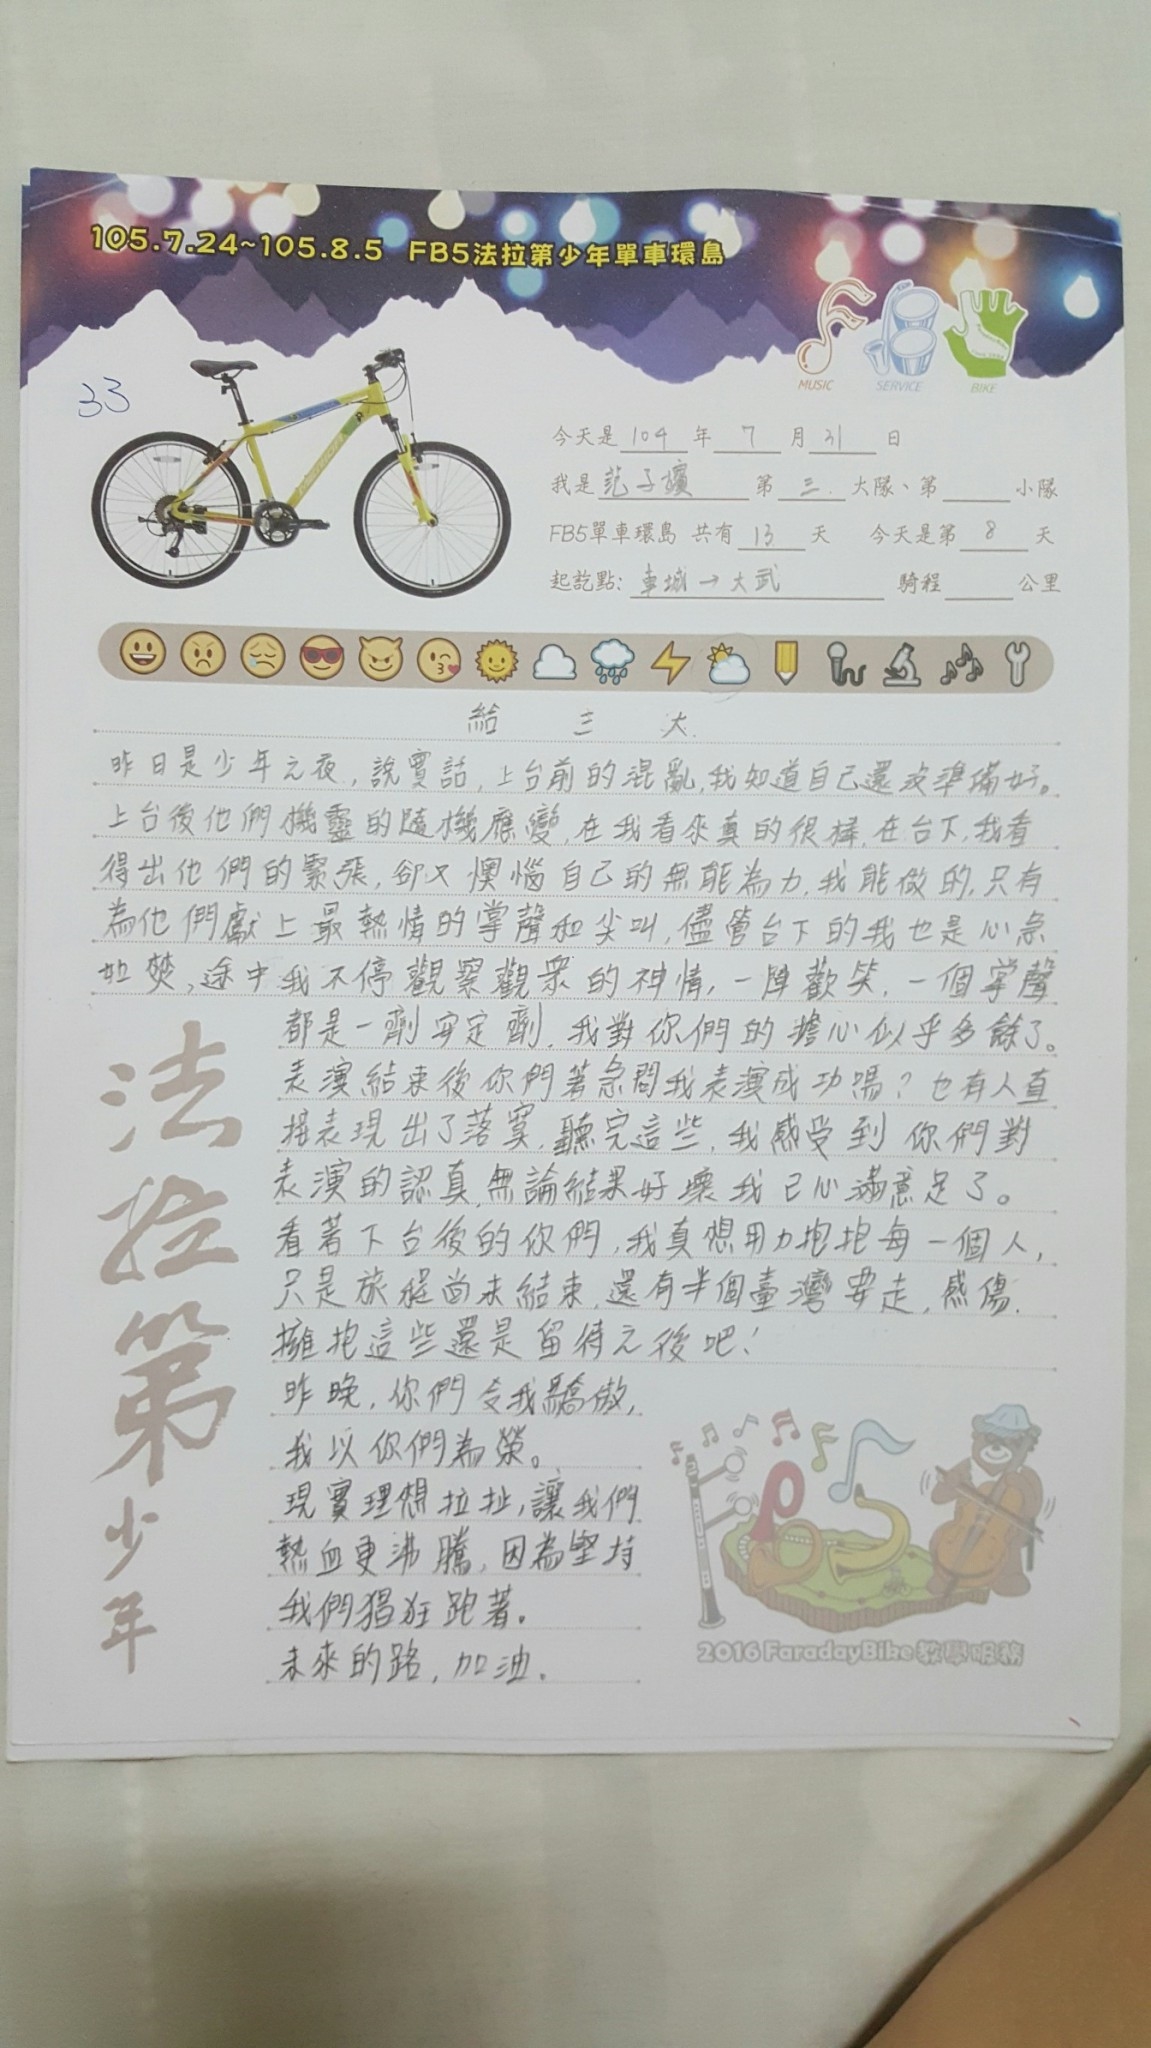 105.7.24~105.8.5 FB5法拉第少年單車環島
MUSIC SERVICE BIKE
33
今天是 104 年 7 月 31 日
我是 范子 第 三 大隊、第 小隊
FB5單車環島 共有 13 天 今天是第 8 天
起訖點: 車城→大武 騎程 公里
給 三 大
昨日是少年之夜,說實話,上台前的混亂,我知道自己還沒準備好。
上台後他們機靈的隨機應變,在我看來真的很棒,在台下,我看
得出他們的緊張,卻又懊惱自己的無能為力,我能做的,只有
為他們獻上最熱情的掌聲和尖叫,儘管台下的我也是心急
如焚,途中我不停觀察觀眾的神情,一陣歡笑,一個掌聲
都是一劑安定劑,我對你們的擔心似乎多餘了。
表演結束後你們著急問我表演成功嗎?也有人直
接表現出了落寞,聽完這些,我感受到你們對
表演的認真,無論結果好壞我已心滿意足了。
看著下台後的你們,我真想用力抱抱每一個人,
只是旅程尚未結束,還有半個臺灣要走,感傷,
擁抱這些還是留待之後吧!
昨晚,你們令我驕傲,
我以你們為榮。
現實理想拉扯,讓我們
熱血更沸騰,因為堅持
我們猖狂跑著。
未來的路,加油。
法拉第少年
2016 FaradayBike教學服務